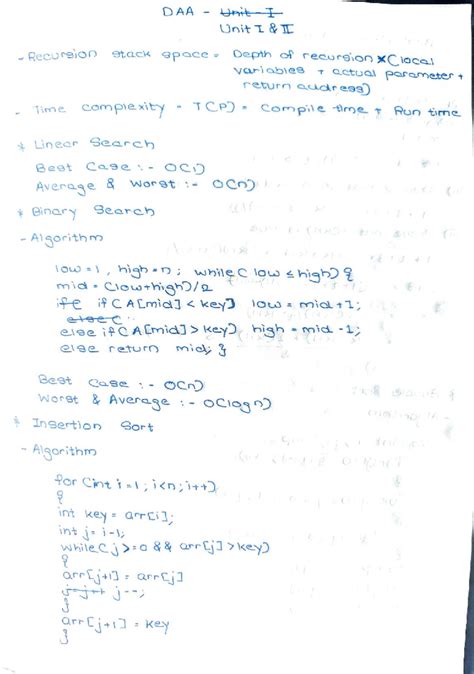 DAA - Unit - I
Unit I & II
- Recursion stack space = Depth of recursion × (local
variables + actual parameter +
return address)
- Time complexity - T(P) = Compile time + Run time
* Linear Search
Best Case :- O(1)
Average & Worst :- O(n)
* Binary Search
- Algorithm
low = 1, high = n; while( low ≤ high) {
mid = (low+high)/2
if ( A[mid] < key) low = mid + 1;
else (
else if( A[mid] > key) high = mid - 1;
else return mid; }
Best Case :- O(n)
Worst & Average :- O(log n)
* Insertion Sort
- Algorithm
for (int i = 1; i<n; i++)
{
int key = arr[i];
int j = i-1;
while( j >= 0 && arr[j] > key)
{
arr[j+1] = arr[j]
j--;
}
arr[j+1] = key
}